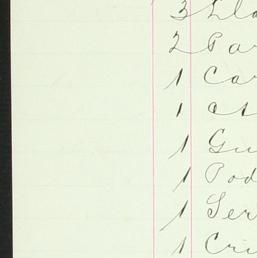 3 Slo
2 Par
1 Car
1 at
1 Gu
1 Pod
1 Ser
1 Cri